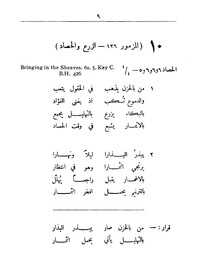 ٩
١٠ (المزمور ١٢٦ – الزرع والحصاد)
Bringing in the Sheaves. 6s. 5. Key C.
B.H. 426
الحصاد
١ من بالحزن يذهب في الحقول يتعب
والدموع تسكب اذ يفنى الفؤاد
بالبكاء يزرع بالتهليل يجمع
بالاثمار يشبع في وقت الحصاد
٢ يبذر البذارا ليلاً ونهارا
يرتجي اثمارا وهو في انتظار
بالاغمار يقبل راجعاً يهلل
بالترنيم يحمل اغمر اثمار
قرار: – من بالحزن صار يبذر البذار
بالتهليل يأتي يحمل اثمار